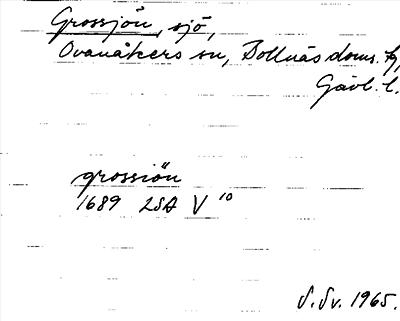 Grossjön, sjö,
Ovanåkers sn, Bollnäs doms. tg,
Gävl. l.
grossiön
1689 LSA V 10
S. Sv. 1965.